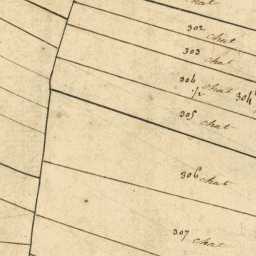 chat
302
chat
303
chat
304
1/2 chat 304
305
chat
306 chat
307 chat